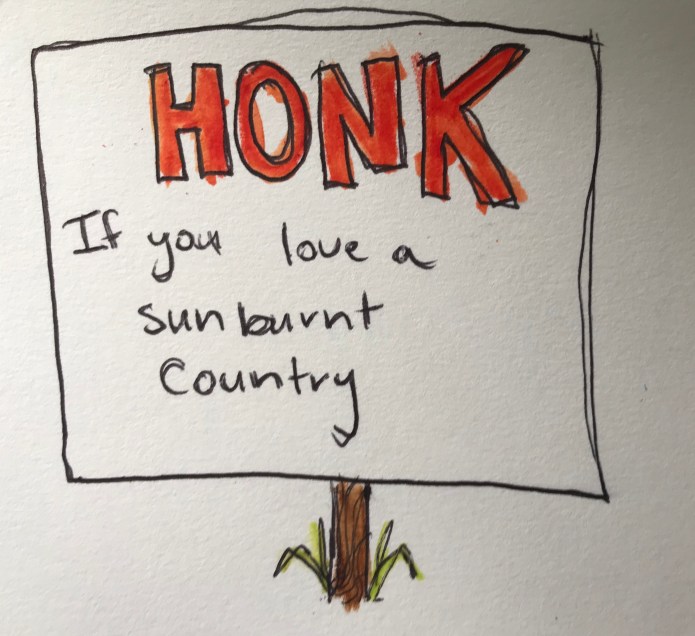 HONK
If you love a
sunburnt
Country